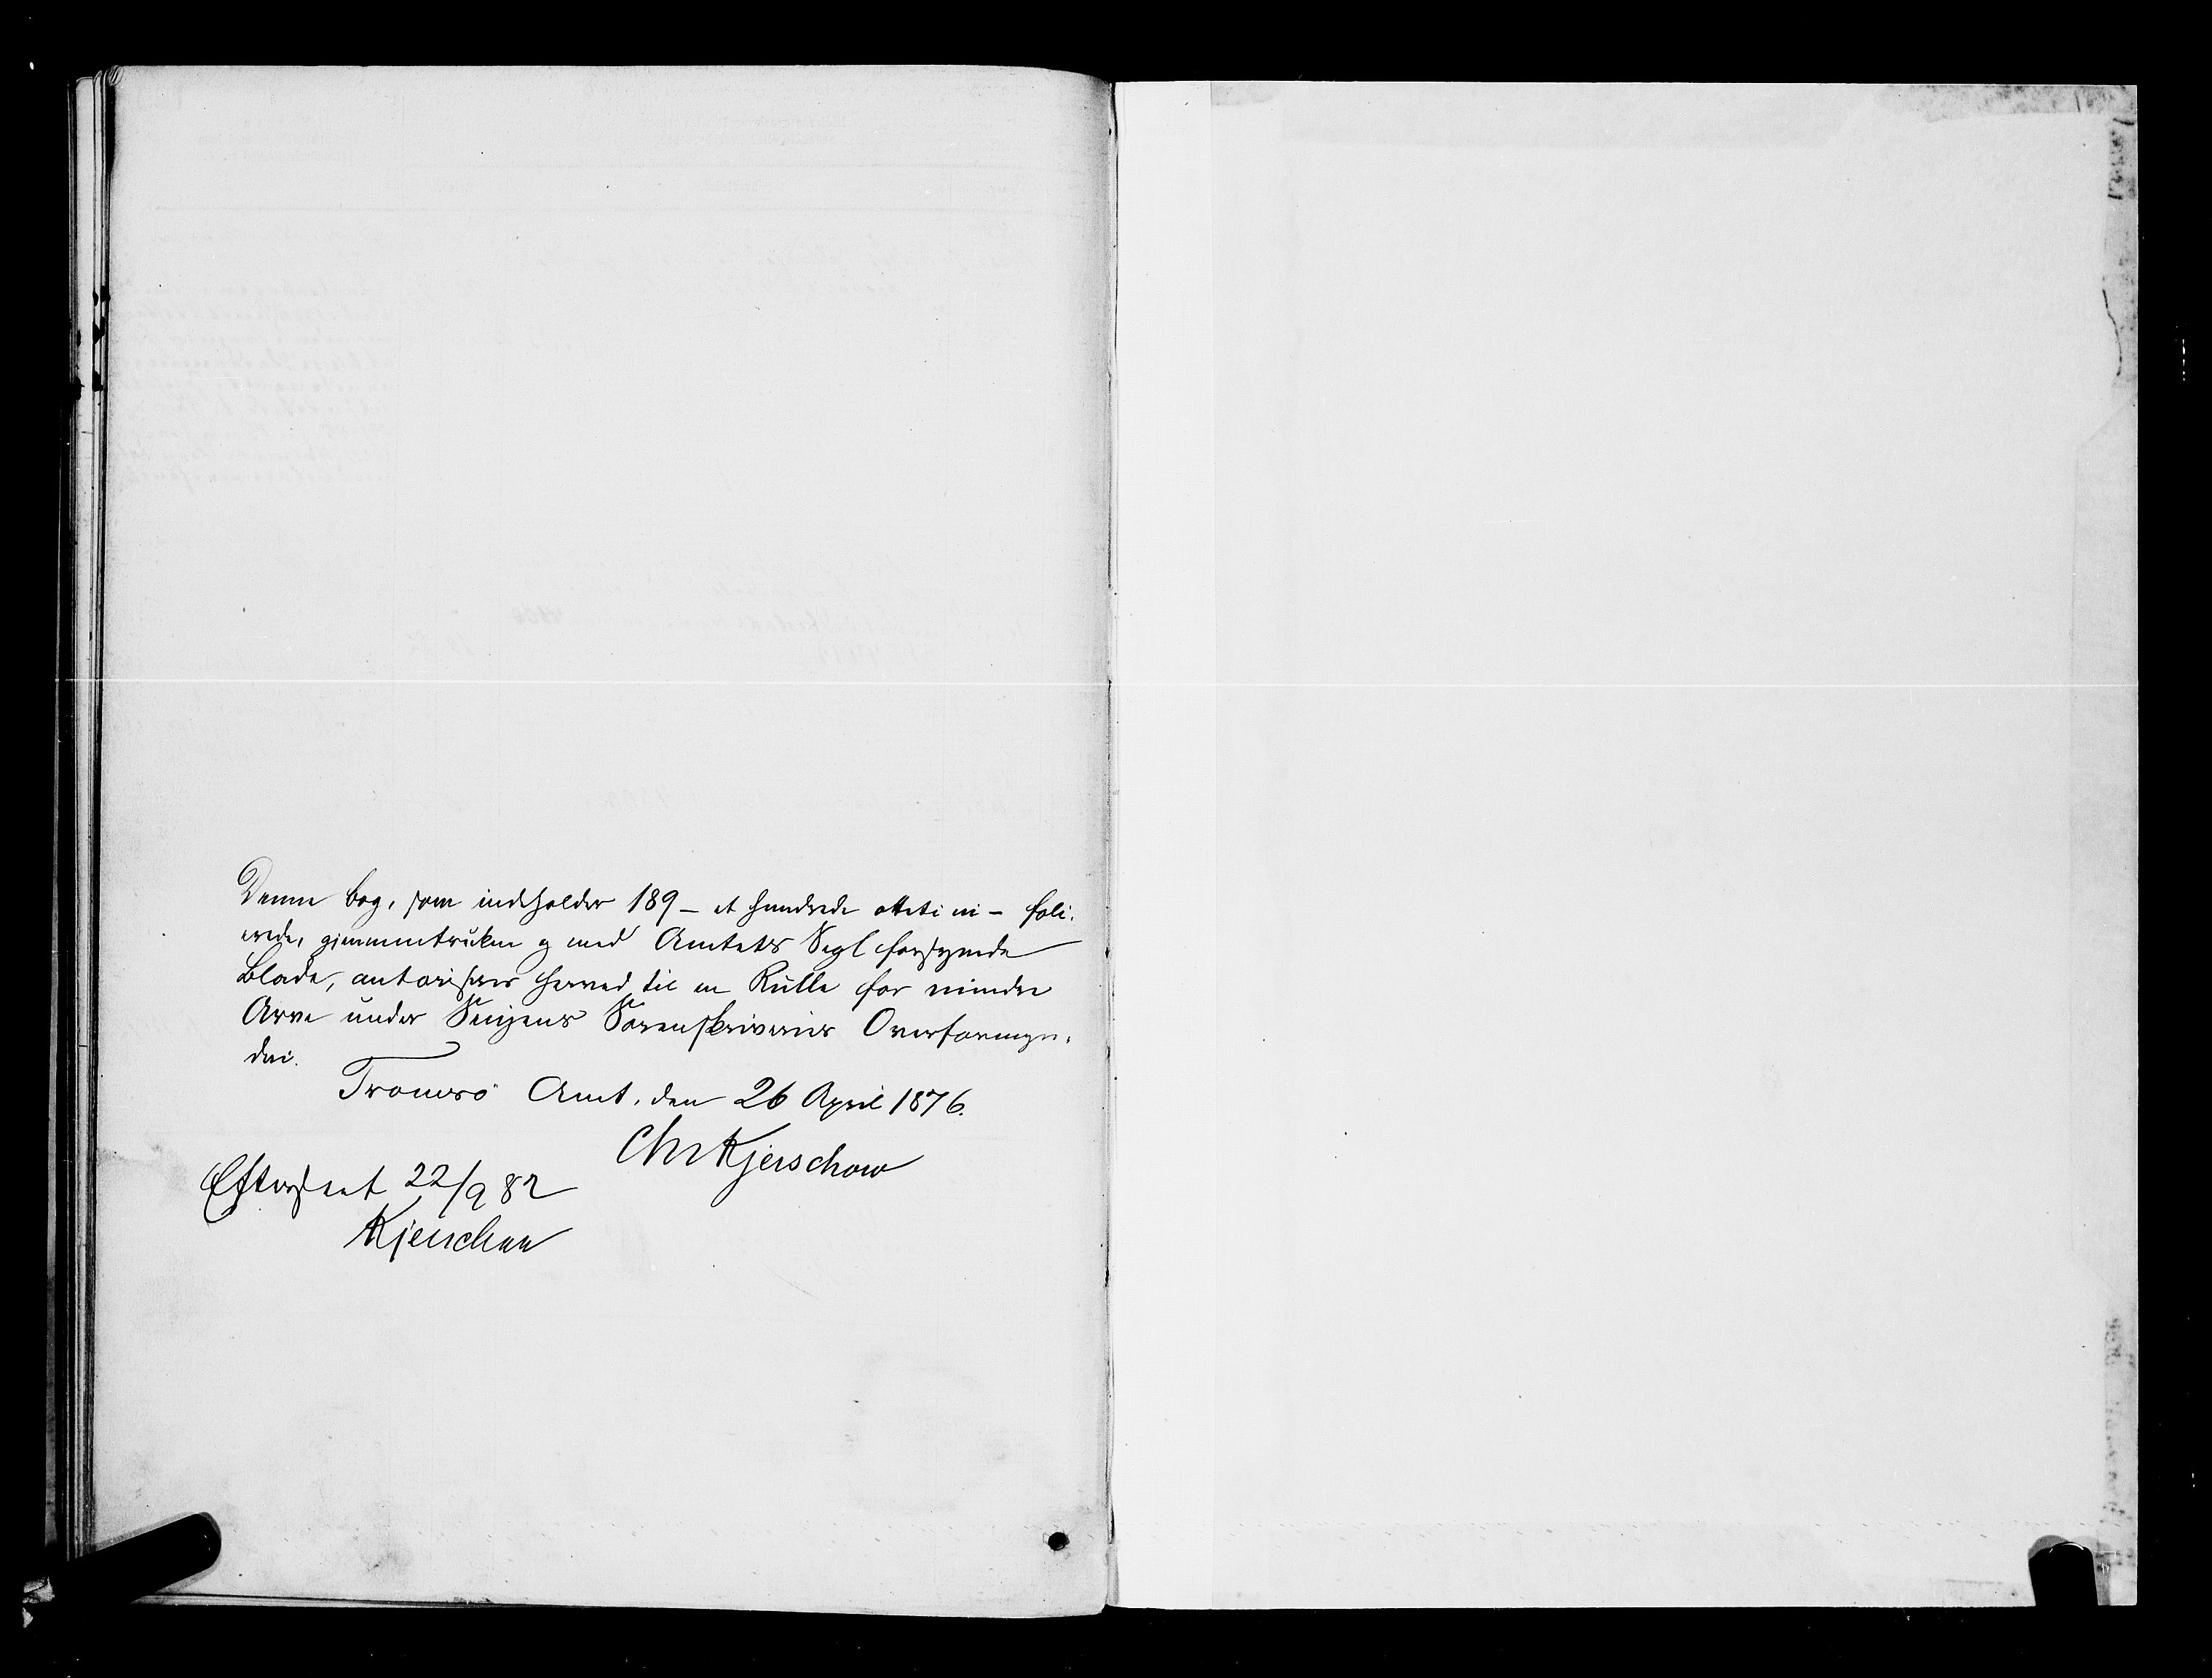 Denne Bog, som indeholder 189 - et hundrede otteti ni - foli-
erede, gjennemtrukne og med Amtets Segl forsynede
Blade, autoriseres herved til en Rulle for mindre
Arve under Senjens Sorenskriveries Overformyn-
deri.
Tromsö Amt, den 26 April 1876.
Chr Kjerschow
Efterseet 22/9 82
Kjerschow